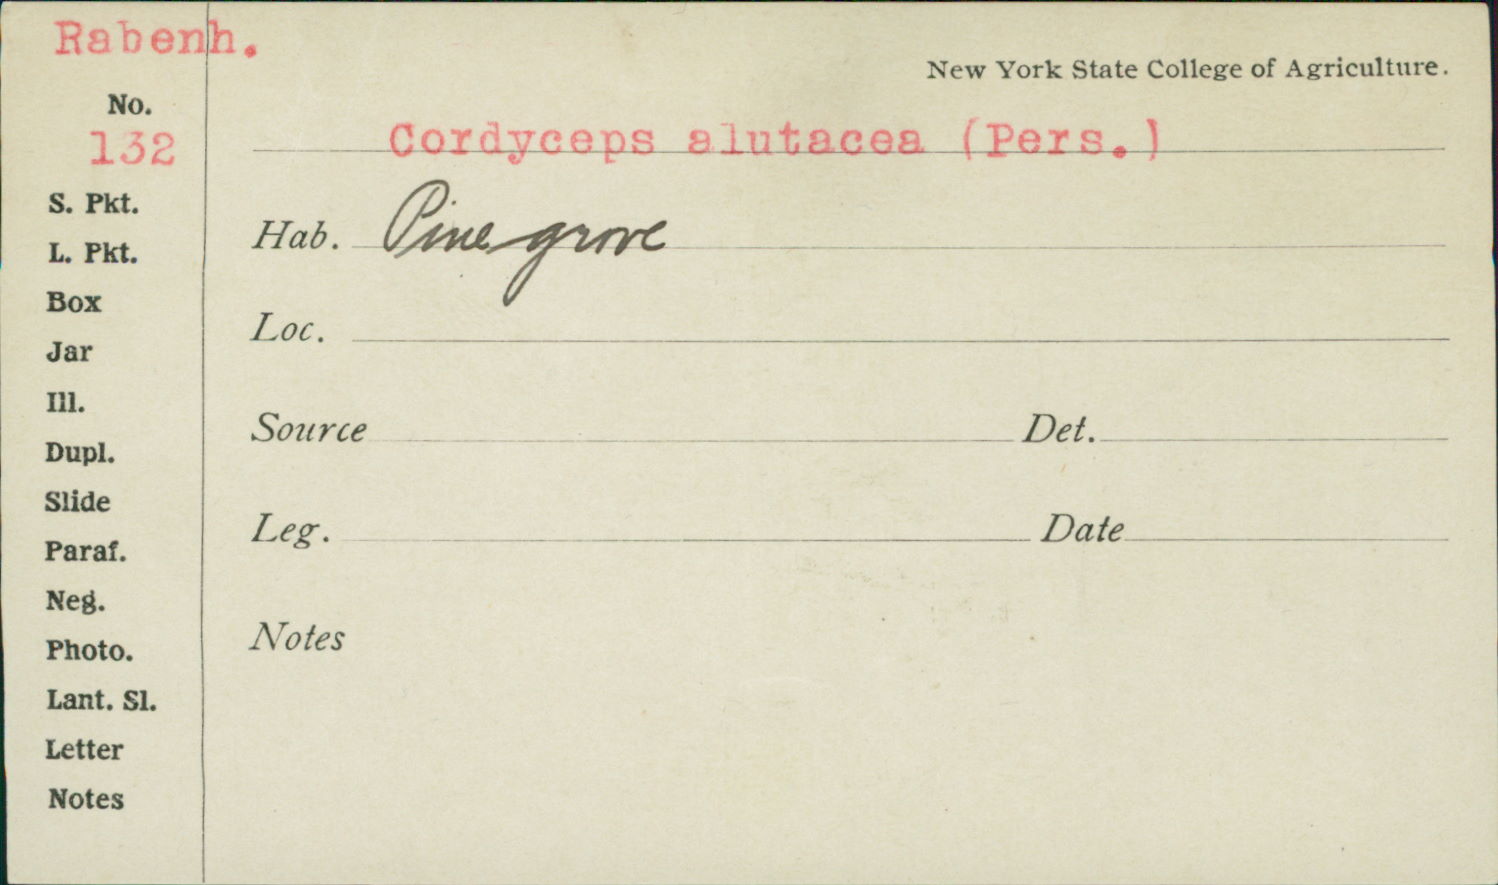 Rabenh.
New York State College of Agriculture.
No.
132
Cordyceps alutacea (Pers.)
S. Pkt.
L. Pkt.
Box
Jar
Ill.
Dupl.
Slide
Paraf.
Neg.
Photo.
Lant. Sl.
Letter
Notes
Hab. Pine grove
Loc.
Source Det.
Leg. Date
Notes